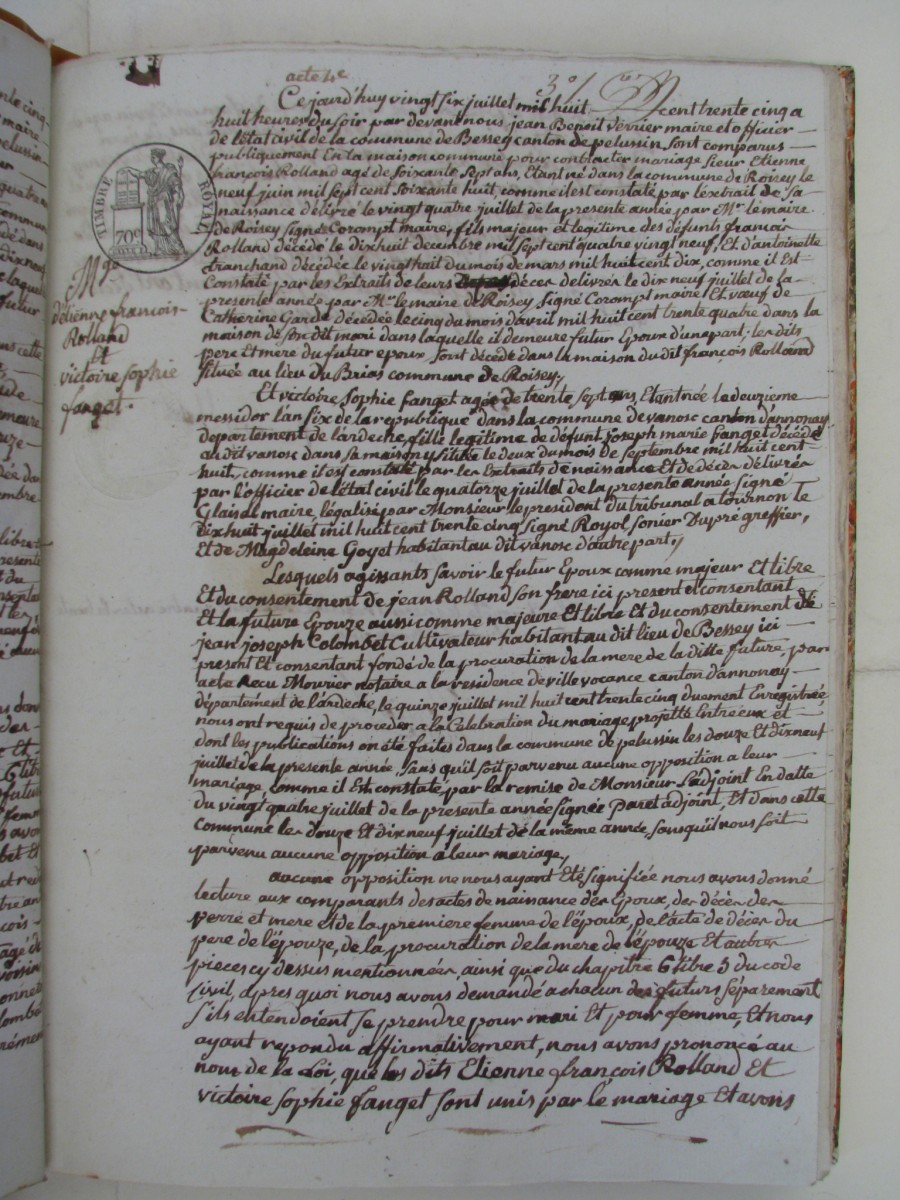 acte 4e
Ce jourd'huy vingt six juillet mil huit cent trente cinq a
huit heures du soir par devant nous jean Benoit verrier maire et officier
de l'état civil de la commune de Bessey canton de pelussin sont comparus
publiquement En la maison commune pour contracter mariage sieur Etienne
françois Rolland agé de soixante sept ans, Etant né dans la commune de Roisey le
neuf juin mil sept cent soixante huit, comme il est constaté par l'extrait de sa
naissance délivré le vingt quatre juillet de la presente année par Mr le maire
de Roisey signé Corompt maire, fils majeur et legitime des défunts françois
Rolland décédé le dix huit decembre mil sept cent quatre vingt neuf, Et d'antoinette
franchand décédée le vingt hait du mois de mars mil huit cent dix, comme il Est
Constaté par les Extraits de leurs décès délivrés le dix neuf juillet de la
presente année par Mr le maire de Roisey signé Corompt maire Et vœuf de
Catherine Garde décédée le cinq du mois d'avril mil huit cent trente quatre dans la
maison de son dit mari dans laquelle il demeure futur Epoux d'une part; les dits
pere et mere du futur epoux, sont décédé dans la maison du dit françois Rolland
située au lieu du Brias commune de Roisey,
Et victoire Sophie fanget agée de trente sept ans, Etant née le deuzieme
messidor l'an six de la republique dans la commune de vanosc canton d'annonay
departement de l'andeche, fille legitime de défunt Joseph marie fanget décédé
au dit vanosc dans sa maison y située le deux du mois de septembre mil huit cent
huit, comme il est constaté par les Extraits de naissance Et de décès délivrés
par l'officier de l'état civil le quatorze juillet de la presente année signé
maire, légalisé par Monsieur le president du tribunal a tournon le
dix huit juillet mil huit cent trente cinq signé Royol sonier Dupré greffier,
Et de Magdeleine Goyet habitant au dit vanosc d'autre part,
Lesquels agissants savoir le futur Epoux comme majeur Et libre
Et du consentement de jean Rolland son frere ici present et consentant
Et la future Epouze aussi comme majeure Et libre Et du consentement de
jean joseph Colombet Cultivateur habitant au dit lieu de Bessey ici
present Et consentant fondé de la procuration de la mere de la ditte future, par
acte Recu Mourier notaire a la residence de ville vocance canton d'annonay
département de l'ardeche, le quinze juillet mil huit cent trente cinq duement Enregistrée,
nous ont requis de proceder a la Celebration du mariage projetté Entre eux et
dont les publications on été faites dans la commune de pelussin les douze Et dix neuf
juillet de la presente année, sans qu'il soit parvenu aucune opposition a leur
mariage, comme il Est constaté par la remise de Monsieur l'adjoint En datte
du vingt quatre juillet de la presente année signée Paret adjoint, Et dans cette
commune les douze Et dix neuf juillet de la même année, sans qu'il nous soit
parvenu aucune opposition a leur mariage,
aucune opposition ne nous ayant Eté signifiée nous avons donné
lecture aux comparants des actes de naisance des Epoux, des décès des
perre et mere et de la premiere femme de l'époux, de l'acte de décès du
pere de l'épouze, de la procuration de la mere de l'épouze Et autres
pieces cy dessus mentionnées, ainsi que du chapitre 6 titre 5 du code
civil, apres quoi nous avons demandé a chacun des futurs séparement
s'ils entendoient se prendre pour mari Et pour femme, Et nous
ayant repondu affirmativement, nous avons prononcé au
nom de la Loi, que les dits Etienne françois Rolland Et
victoire Sophie fanget sont unis par le mariage Et avons
TIMBRE ROYAL
70c
Mge
d'étienne françois
Rolland
Et
victoire sophie
fanget.